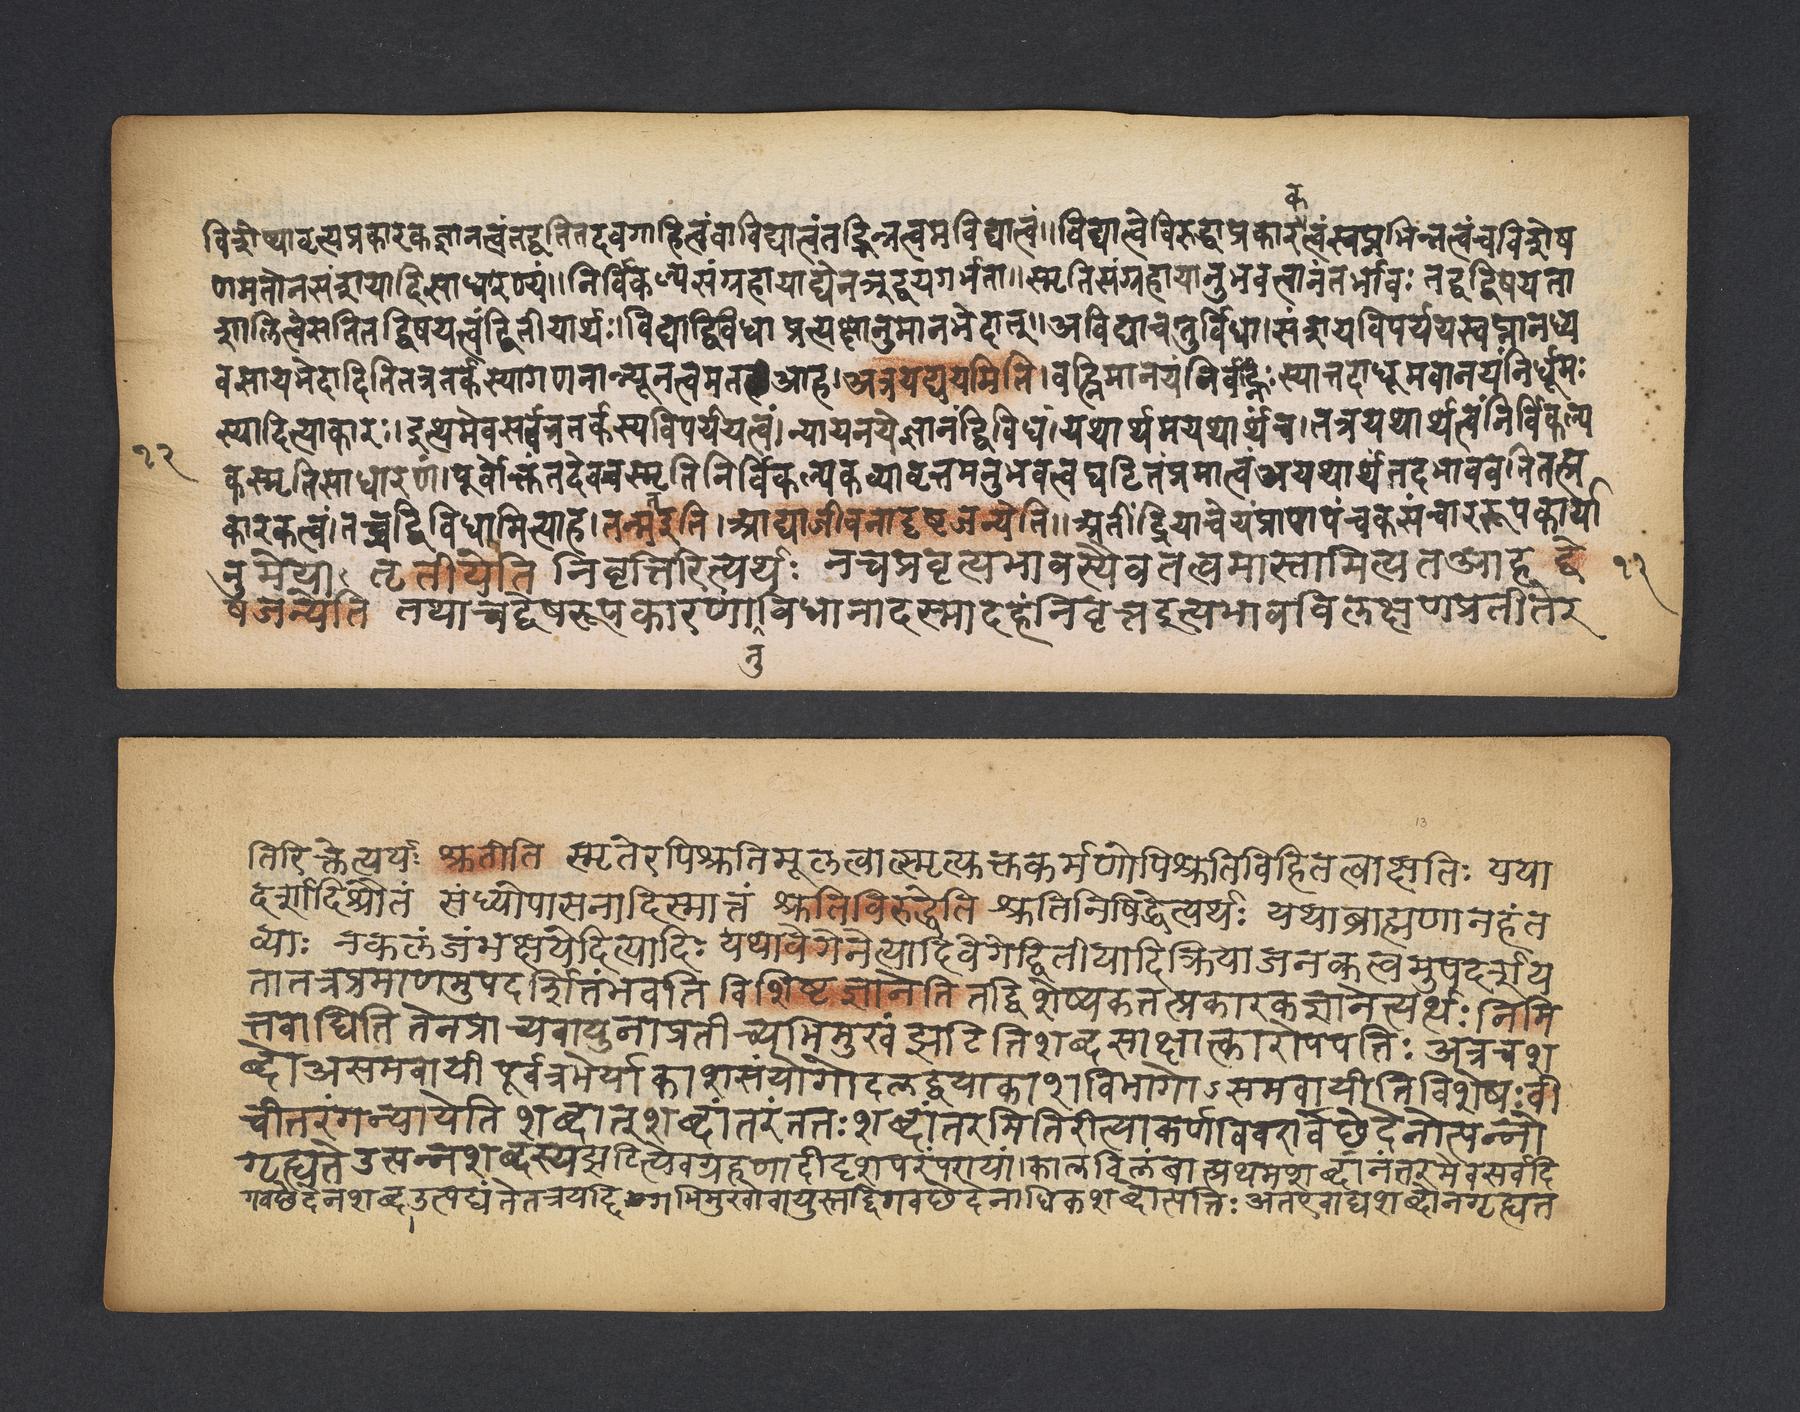 क
विशेष्यावृत्त्यप्रकारकज्ञानत्वंतद्वतितदवगाहित्वंवाविद्यात्वंतद्भिन्नत्वमविद्यात्वं॥विद्यात्वेविरुद्धाप्रकारत्वंस्वप्नभिन्नत्वंचविशेष
णमतोनसंशयादिसाधारण्यं॥निर्विकल्पसंग्रहायाद्येनञद्वयगर्भता॥स्मृतिसंग्रहायानुभवत्वानंतर्भावः तद्वद्विषयता
शालित्वेसतितद्विषयत्वंद्वितीयार्थः।विद्याद्विविधा प्रत्यक्षानुमानभेदात्॥अविद्याचतुर्विधा।संशयविपर्ययस्वप्नानध्य
वसायभेदादितितत्रतर्कस्यागणनान्न्यूनत्वमतआह।अत्रयद्ययमिति।वह्निमानयंनिर्वह्निःस्यात्तदाधूमवानयंनिर्धूमः
स्यादित्याकारः।इत्थमेवसर्वत्रतर्कस्यविपर्ययत्वं।न्यायनयेज्ञानंद्विविधं।यथार्थमयथार्थंच।तत्रयथार्थत्वंनिर्विकल्प
१२
कस्मृतिसाधारणं।पूर्वोक्तंतदेवचस्मृतिनिर्विकल्पकव्यावृत्तमनुभवत्वघटितंप्रमात्वंअयथार्थंतदभाववतितत्प्र
कारकत्वं।तच्चद्विविधामित्याह।तन्मतइति।आद्याजीवनादृष्टजन्येति॥अतींद्रियाचेयंप्राणपंचकसंचाररूपकार्या
नुमेया। तृतीयेति निवृत्तिरित्यर्थः नचप्रवृत्त्यभावस्यैवतत्त्वमास्तामित्यतआह द्वे
१२
षजन्येति तथाचद्वेषरूपकारणाविधानादस्मादहंनिवृत्तइत्यभावविलक्षणप्रतीतेर
नु
13
तिरिक्तेत्यर्थः श्रुतीति स्मृतेरपिश्रुतिमूलत्वात्स्मृत्युक्तकर्मणोपिश्रुतिविहितत्वान्नक्षतिः यथा
दर्शादिश्रौतं संध्योपासनादिस्मार्त्तं श्रुतिविरुद्धेति श्रुतिनिषिद्धेत्यर्थः यथाब्राह्मणानहंत
व्याः नकलंजंभक्षयेदित्यादिः यथावेगेनेत्यादिवेगेद्वितीयादिक्रियाजनकत्वमुपदर्श्य
तातत्रप्रमाणमुपदर्शितंभवति विशिष्टज्ञानेति तद्विशेष्यकतत्प्रकारकज्ञानेत्यर्थः निमि
त्तवाय्विति तेनप्राच्यवायुनाप्रतीच्यभिमुखंझटितिशब्दसाक्षात्कारोपपत्तिः अत्रचश
ब्दोअसमवायी पूर्वत्रभेर्याकाशसंयोगोदलद्वयाकाशविभागोऽसमवायीतिविशेषः वी
चीतरंगन्यायेति शब्दात्शब्दांतरंततःशब्दांतरमितिरीत्याकर्णविवरावछेदेनोत्पन्नो
गृह्यते उत्सन्नशब्दस्यझटित्येवग्रहणादीदृशपरंपरायां।कालविलंबात्प्रथमशब्दानंतरमेवसर्वदि
गवछेदेनशब्दउत्पद्यंतेतत्रयद्दिगभिमुखोवायुस्तद्दिगवछेदेनाधिकशब्दोत्पत्तिः अतएवाद्यशब्दोनगृह्यत